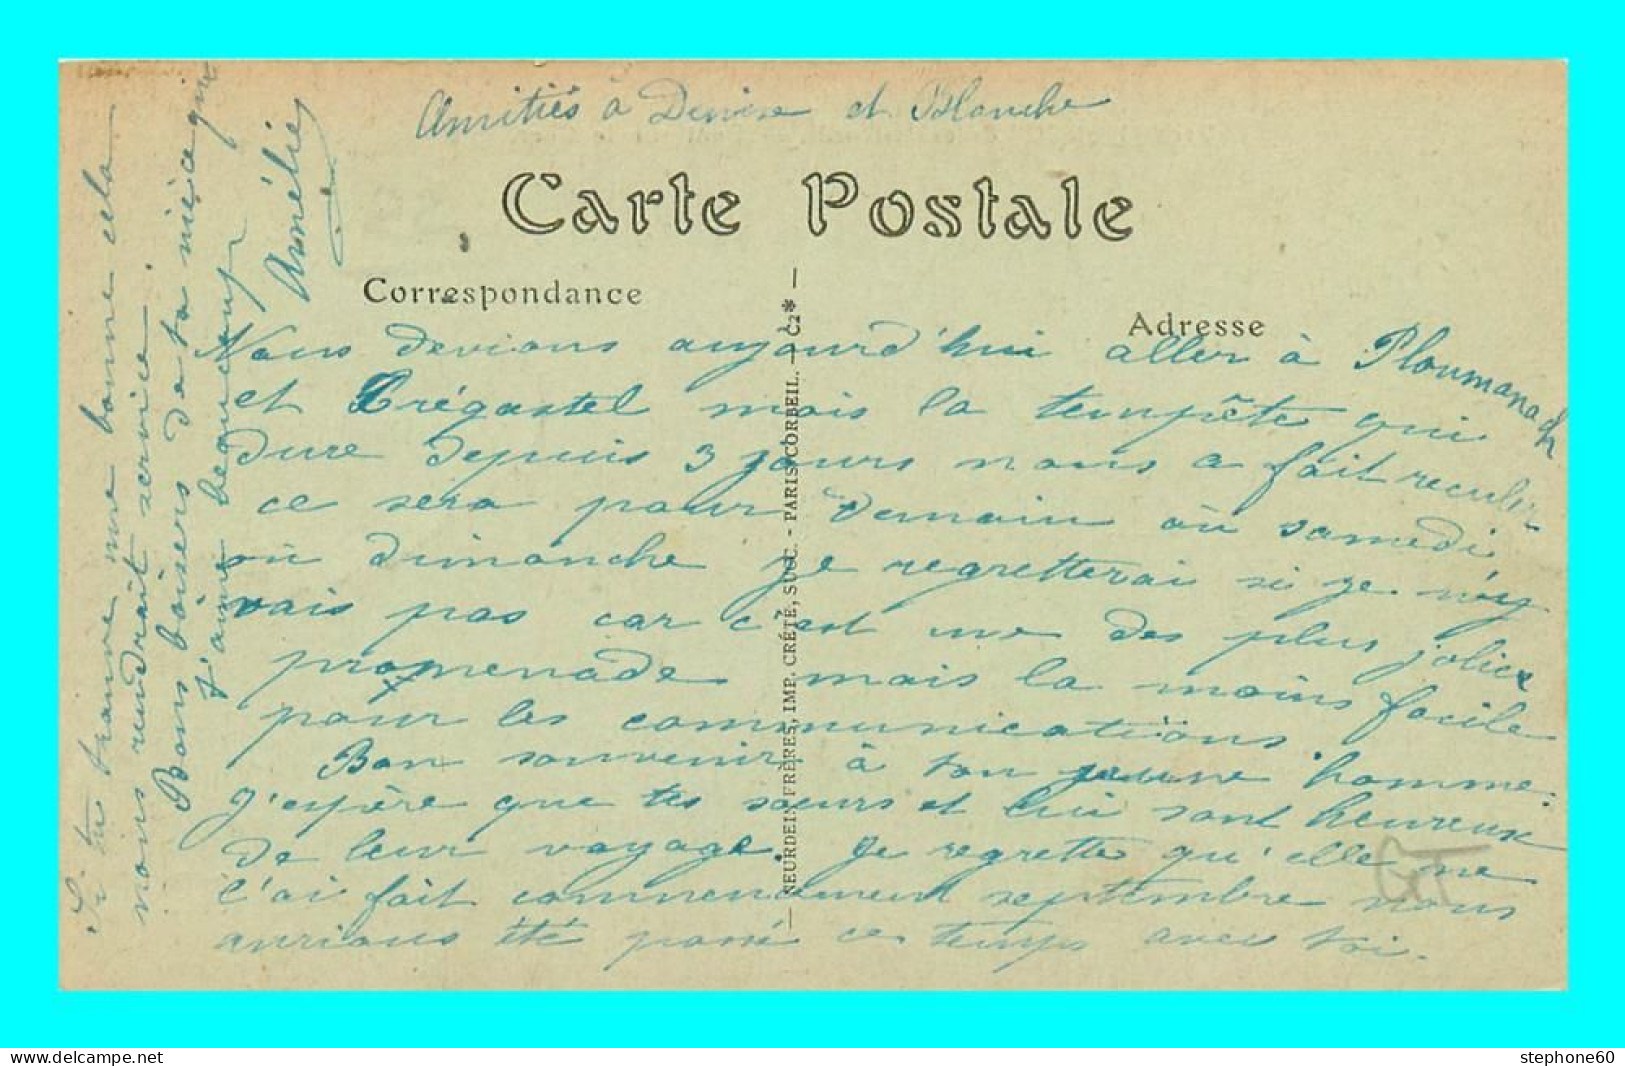 Amitiés à Denise et Blanche
Carte Postale
Correspondance
Adresse
Nous devions aujourd'hui aller à Ploumanach
et Trégastel mais la tempête qui
dure depuis 3 jours nous a fait reculer
ce sera pour demain ou samedi
ou dimanche je regretterai si je n'y
vais pas car c'est une des plus jolies
promenade mais la moins facile
pour les communications.
Bon souvenir à ton jeune homme.
J'espère que tes sœurs et lui sont heureux
de leur voyage. Je regrette qu'elle ne
l'ai fait commencement septembre nous
aurions été passé ce temps avec toi.
Si tu trouve une bonne cela
nous rendrait service.
Bons baisers de ta nièce qui
t'aime beaucoup
Amélie
NEURDEIN FRÈRES, IMP. CRÉTÉ, SUCC. - PARIS CORBEIL. - C2*
GT
stephone60